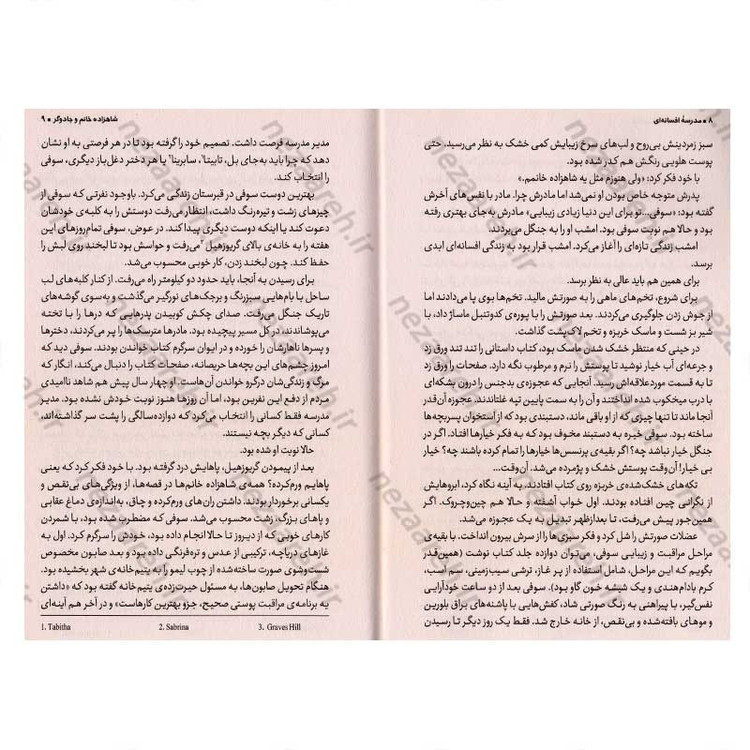 ۸ • مدرسهٔ افسانه‌ای
سبز زمردینش بی‌روح و لب‌های سرخ زیبایش کمی خشک به نظر می‌رسید. حتی
پوست هلویی رنگش هم کدر شده بود.
با خود فکر کرد: «ولی هنوزم مثل یه شاهزاده خانمم.»
پدرش متوجه خاص بودن او نمی‌شد اما مادرش چرا. مادر با نفس‌های آخرش
گفته بود: «سوفی... تو برای این دنیا زیادی زیبایی.» مادرش به جای بهتری رفته
بود و حالا هم نوبت سوفی بود. امشب او را به جنگل می‌بردند.
امشب زندگی تازه‌ای را آغاز می‌کرد. امشب قرار بود به زندگی افسانه‌ای ابدی
برسد.
برای همین هم باید عالی به نظر برسد.
برای شروع، تخم‌های ماهی را به صورتش مالید. تخم‌ها بوی پا می‌دادند اما
از جوش زدن جلوگیری می‌کردند. بعد صورتش را با پوره‌ی کدوتنبل ماساژ داد، با
شیر بز شست و ماسک خربزه و تخم لاک‌پشت گذاشت.
در حینی که منتظر خشک شدن ماسک بود، کتاب داستانی را تند تند ورق زد
و جرعه‌ای آب خیار نوشید تا پوستش را نرم و مرطوب نگه دارد. صفحات را ورق زد
تا به قسمت موردعلاقه‌اش رسید. آنجایی که عجوزه‌ی بدجنس را درون بشکه‌ای
با درب میخکوب شده انداختند و آن را به سمت پایین تپه غلتاندند. عجوزه آن‌قدر
آنجا ماند تا تنها چیزی که از او باقی ماند، دستبندی بود که از استخوان پسربچه‌ها
ساخته بود. سوفی خیره به دستبند مخوف بود که به فکر خیارها افتاد. اگر در
جنگل خیار نباشد چه؟ اگر بقیه‌ی پرنسس‌ها خیارها را تمام کرده باشند چه؟ خیار
بی خیار! آن وقت پوستش خشک و پژمرده می‌شد. آن‌وقت...
تکه‌های خشک‌شده‌ی خربزه روی کتاب افتادند. به آینه نگاه کرد، ابروهایش
از نگرانی چین افتاده بودند. اول خواب آشفته و حالا هم چین‌وچروک. اگر
همین‌جور پیش می‌رفت، تا بعدازظهر تبدیل به یک عجوزه می‌شد.
عضلات صورتش را شل کرد و فکر سبزی‌ها را از سرش بیرون انداخت. با بقیه‌ی
مراحل مراقبت و زیبایی سوفی، می‌توان دوازده جلد کتاب نوشت (همین‌قدر
بگویم که این مراحل، شامل استفاده از پر غاز، ترشی سیب‌زمینی، سم اسب،
کرم بادام‌هندی و یک شیشه خون گاو بود). سوفی بعد از دو ساعت خودآرایی
نفس‌گیر، با پیراهنی به رنگ صورتی شاد، کفش‌هایی با پاشنه‌های براق بلورین
و موهای بافته‌شده و بی‌نقص، از خانه خارج شد. فقط یک روز دیگر تا رسیدن
شاهزاده خانم و جادوگر • ۹
مدیر مدرسه فرصت داشت. تصمیم خود را گرفته بود تا در هر فرصتی به او نشان
دهد که چرا باید به‌جای بل، تابیتا¹، سابرینا² یا هر دختر دغل‌باز دیگری، سوفی
را انتخاب کند.
بهترین دوست سوفی در قبرستان زندگی می‌کرد. باوجود نفرتی که سوفی از
چیزهای زشت و تیره‌رنگ داشت، انتظار می‌رفت دوستش را به کلبه‌ی خودشان
دعوت کند یا اینکه دوست دیگری پیدا کند. در عوض، سوفی تمام روزهای این
هفته را به خانه‌ی بالای گریوزهیل³ می‌رفت و حواسش بود تا لبخند روی لبش را
حفظ کند. چون لبخند زدن، کار خوبی محسوب می‌شد.
برای رسیدن به آنجا، باید حدود دو کیلومتر راه می‌رفت. از کنار کلبه‌های لب
ساحل با بام‌هایی سبزرنگ و برجک‌های نورگیر می‌گذشت و به‌سوی گوشه‌های
تاریک جنگل می‌رفت. صدای چکش کوبیدن پدرهایی که درها را با تخته
می‌پوشاندند، در کل مسیر پیچیده بود. مادرها مترسک‌ها را پر می‌کردند، دخترها
و پسرها ناهارشان را خورده و در ایوان سرگرم کتاب خواندن بودند. سوفی دید که
امروز چشم‌های این بچه‌ها حریصانه، صفحات کتاب را دنبال می‌کند، انگار که
مرگ و زندگی‌شان درگرو خواندن آن‌هاست. او چهار سال پیش هم شاهد ناامیدی
مردم از دفع این نفرین بود، اما آن روزها هنوز نوبت خودش نشده بود. مدیر
مدرسه فقط کسانی را انتخاب می‌کرد که دوازده‌سالگی را پشت سر گذاشته‌اند،
کسانی که دیگر بچه نیستند.
حالا نوبت او شده بود.
بعد از پیمودن گریوزهیل، پاهایش درد گرفته بود. با خود فکر کرد که یعنی
پاهایم ورم‌کرده؟ همه‌ی شاهزاده خانم‌ها در قصه‌ها، از ویژگی‌های بی‌نقص و
یکسانی برخوردار بودند. داشتن ران‌های ورم‌کرده و چاق، به‌اندازه‌ی دماغ عقابی
و پاهای بزرگ، زشت محسوب می‌شد. سوفی که مضطرب شده بود، با شمردن
کارهای خوبی که از دیروز تا حالا انجام داده بود، خودش را سرگرم کرد. اول به
غازهای دریاچه، ترکیبی از عدس و تره‌فرنگی داده بود و بعد صابون مخصوص
شست‌وشوی صورت ساخته‌شده از چوب لیمو را به یتیم‌خانه‌ی شهر بخشیده بود.
هنگام تحویل صابون‌ها، به مسئول حیرت‌زده‌ی یتیم‌خانه گفته بود که «داشتن
یه برنامه‌ی مراقبت پوستی صحیح، جزو بهترین کارهاست» و در آخر هم آینه‌ای
1. Tabitha 2. Sabrina 3. Graves Hill
nezaareh.ir